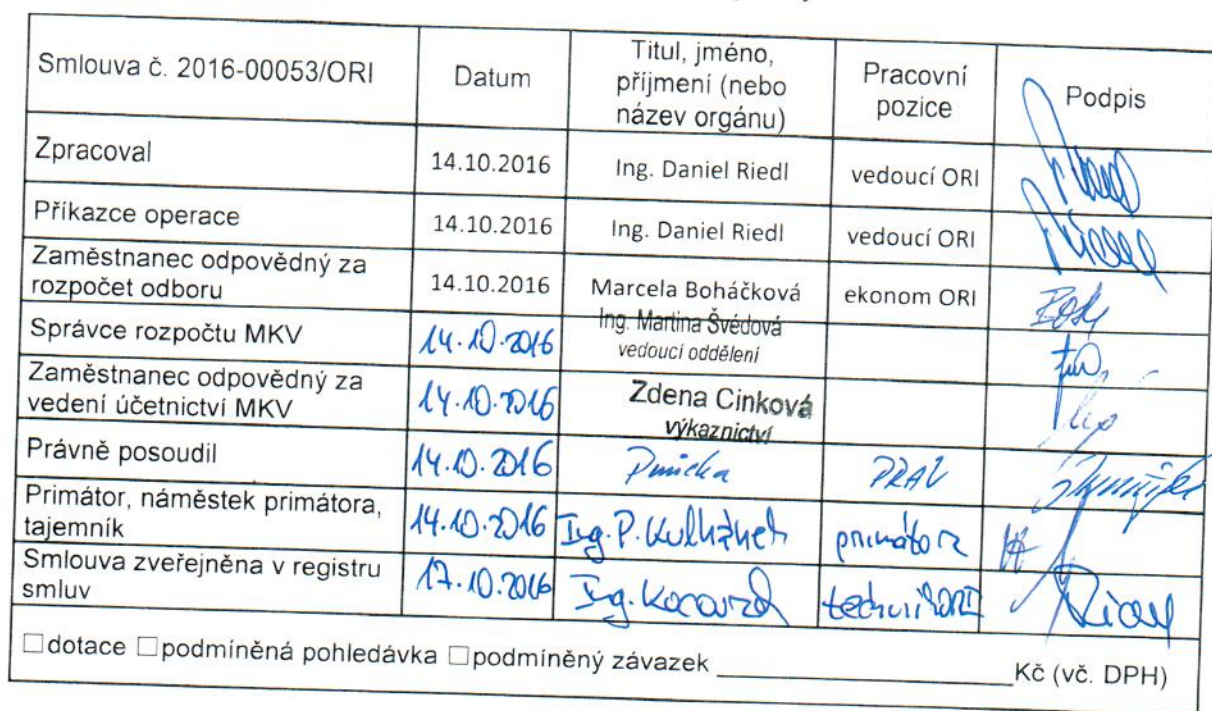 Smlouva č. 2016-00053/ORI
Datum
Titul, jméno,
příjmení (nebo
název orgánu)
Pracovní
pozice
Podpis
Zpracoval
14.10.2016
Ing. Daniel Riedl
vedoucí ORI
Příkazce operace
14.10.2016
Ing. Daniel Riedl
vedoucí ORI
Zaměstnanec odpovědný za
rozpočet odboru
14.10.2016
Marcela Boháčková
ekonom ORI
Správce rozpočtu MKV
14.10.2016
Ing. Martina Švédová
vedoucí oddělení
Zaměstnanec odpovědný za
vedení účetnictví MKV
14.10.2016
Zdena Cinková
výkaznictví
Právně posoudil
14.10.2016
PRAV
Primátor, náměstek primátora,
tajemník
14.10.2016
Ing. P. Kulhánek
primátor
Smlouva zveřejněna v registru
smluv
17.10.2016
Ing. Kocourek
technik ORI
☐dotace ☐podmíněná pohledávka ☐podmíněný závazek ____________________Kč (vč. DPH)